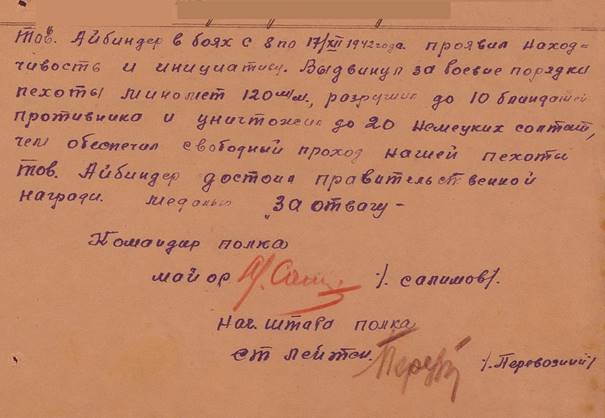 Тов. Айбиндер в боях с 8 по 17/XII 1942 года проявил наход-
чивость и инициативу. Выдвинул за боевые порядки
пехоты миномет 120 м/м, разрушил до 10 блиндажей
противника и уничтожил до 20 немецких солдат,
чем обеспечил свободный проход нашей пехоты
Тов. Айбиндер достоин правительственной
награды. медалью "За отвагу –
Командир полка
майор /. Салимов/.
Нач. штаба полка
ст лейтен. /. Перевозний/